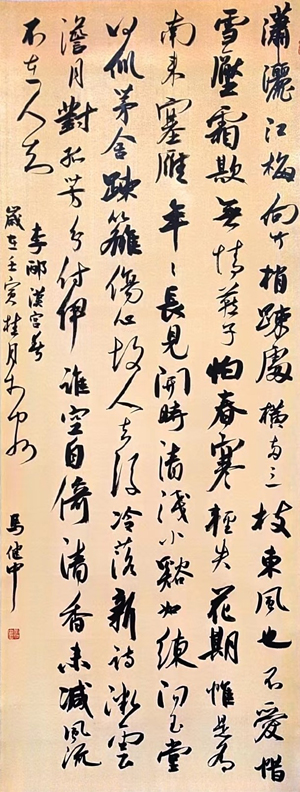 瀟灑江梅向竹梢踈處橫兩三枝東風也不愛惜
雪壓霜欺無情燕子怕春寒輕失花期惟是有
南來塞雁年々長見開時清淺小谿如練问玉堂
何似茅舍踈籬傷心故人去後冷落新詩微雲
澹月對孤芳分付伊誰空自倚清香未減風流
不在人知
李邴漢宮春
歲在壬寅桂月於
馬健中